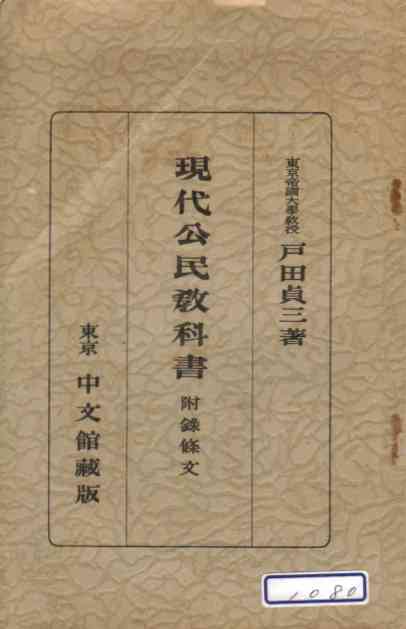 東京帝國大學教授 戸田貞三著
現代公民教科書 附錄條文
東京 中文館藏版
1080